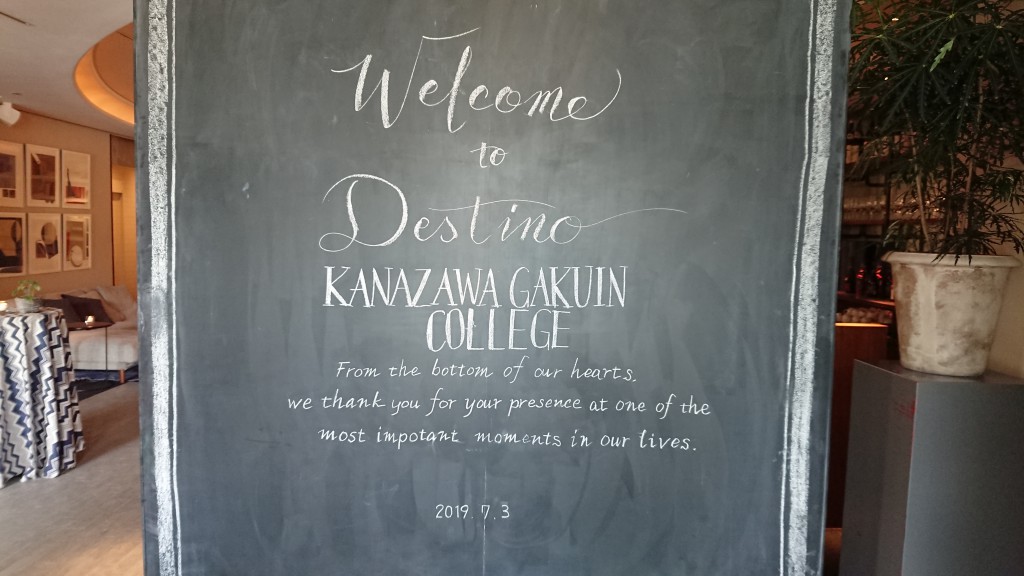 Welcome
to
Destino
KANAZAWA GAKUIN
COLLEGE
From the bottom of our hearts.
we thank you for your presence at one of the
most impotant moments in our lives.
2019.7.3